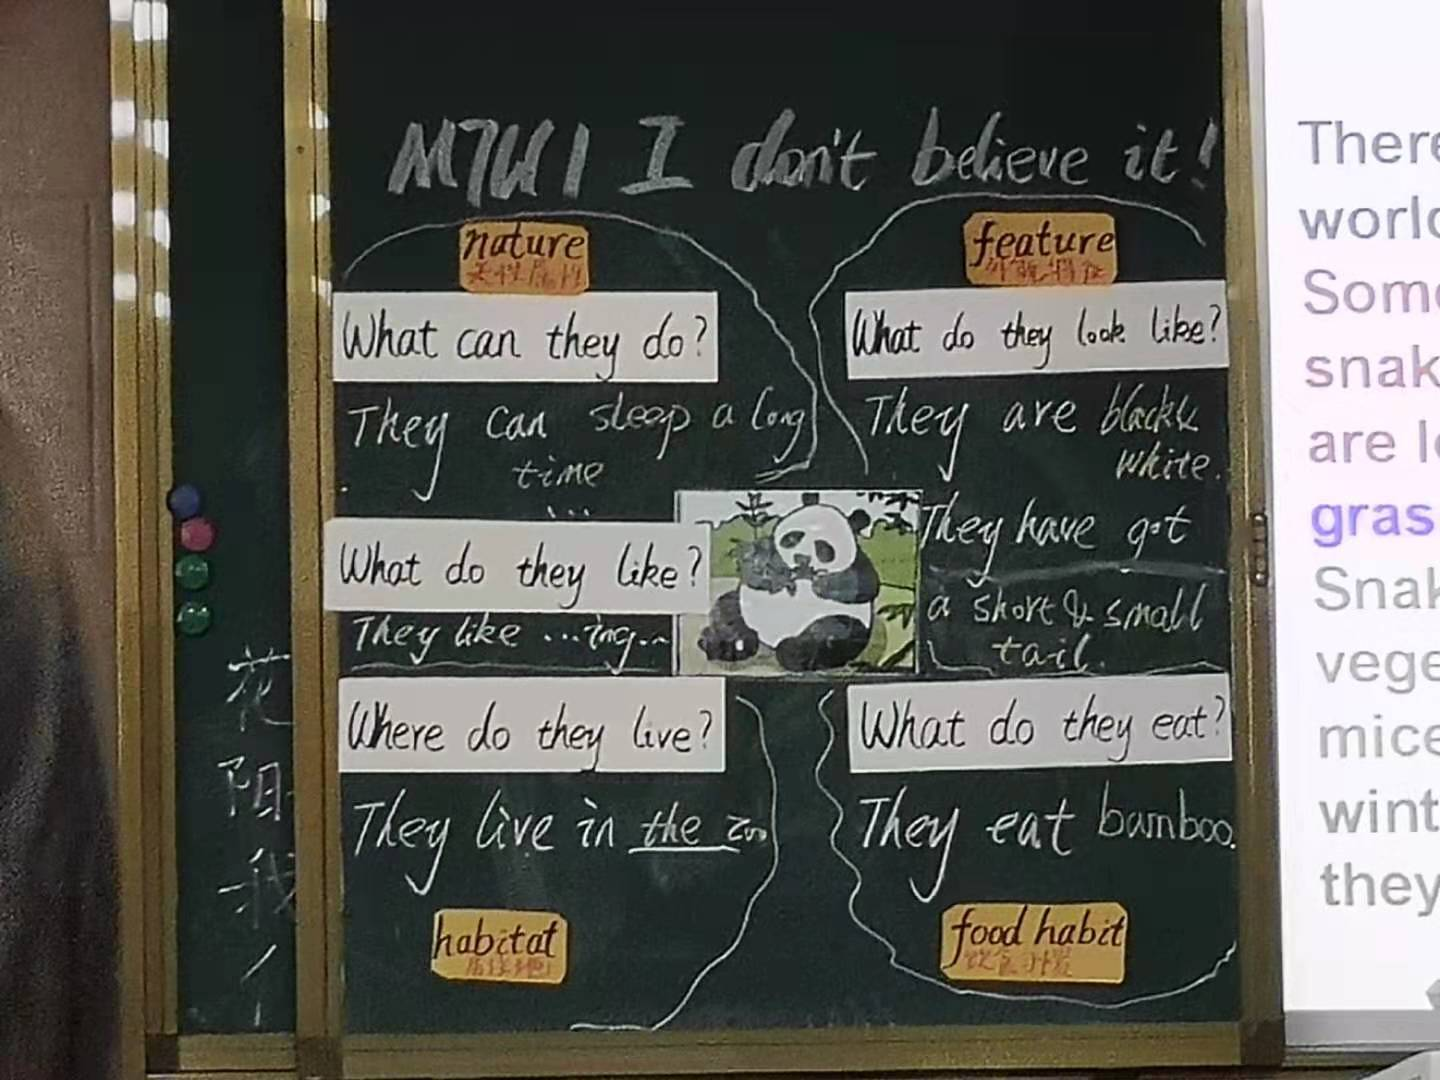 M7U1 I don't believe it!
nature
What can they do?
They can sleep a long
time
...
What do they like?
They like ...ing...
Where do they live?
They live in the zoo
habitat
feature
What do they look like?
They are black&
white.
They have got
a short & small
tail.
What do they eat?
They eat bamboo.
food habit
饮食习惯
花
阳
我
There
world
Some
snak
are l
gras
Snak
vege
mice
wint
they